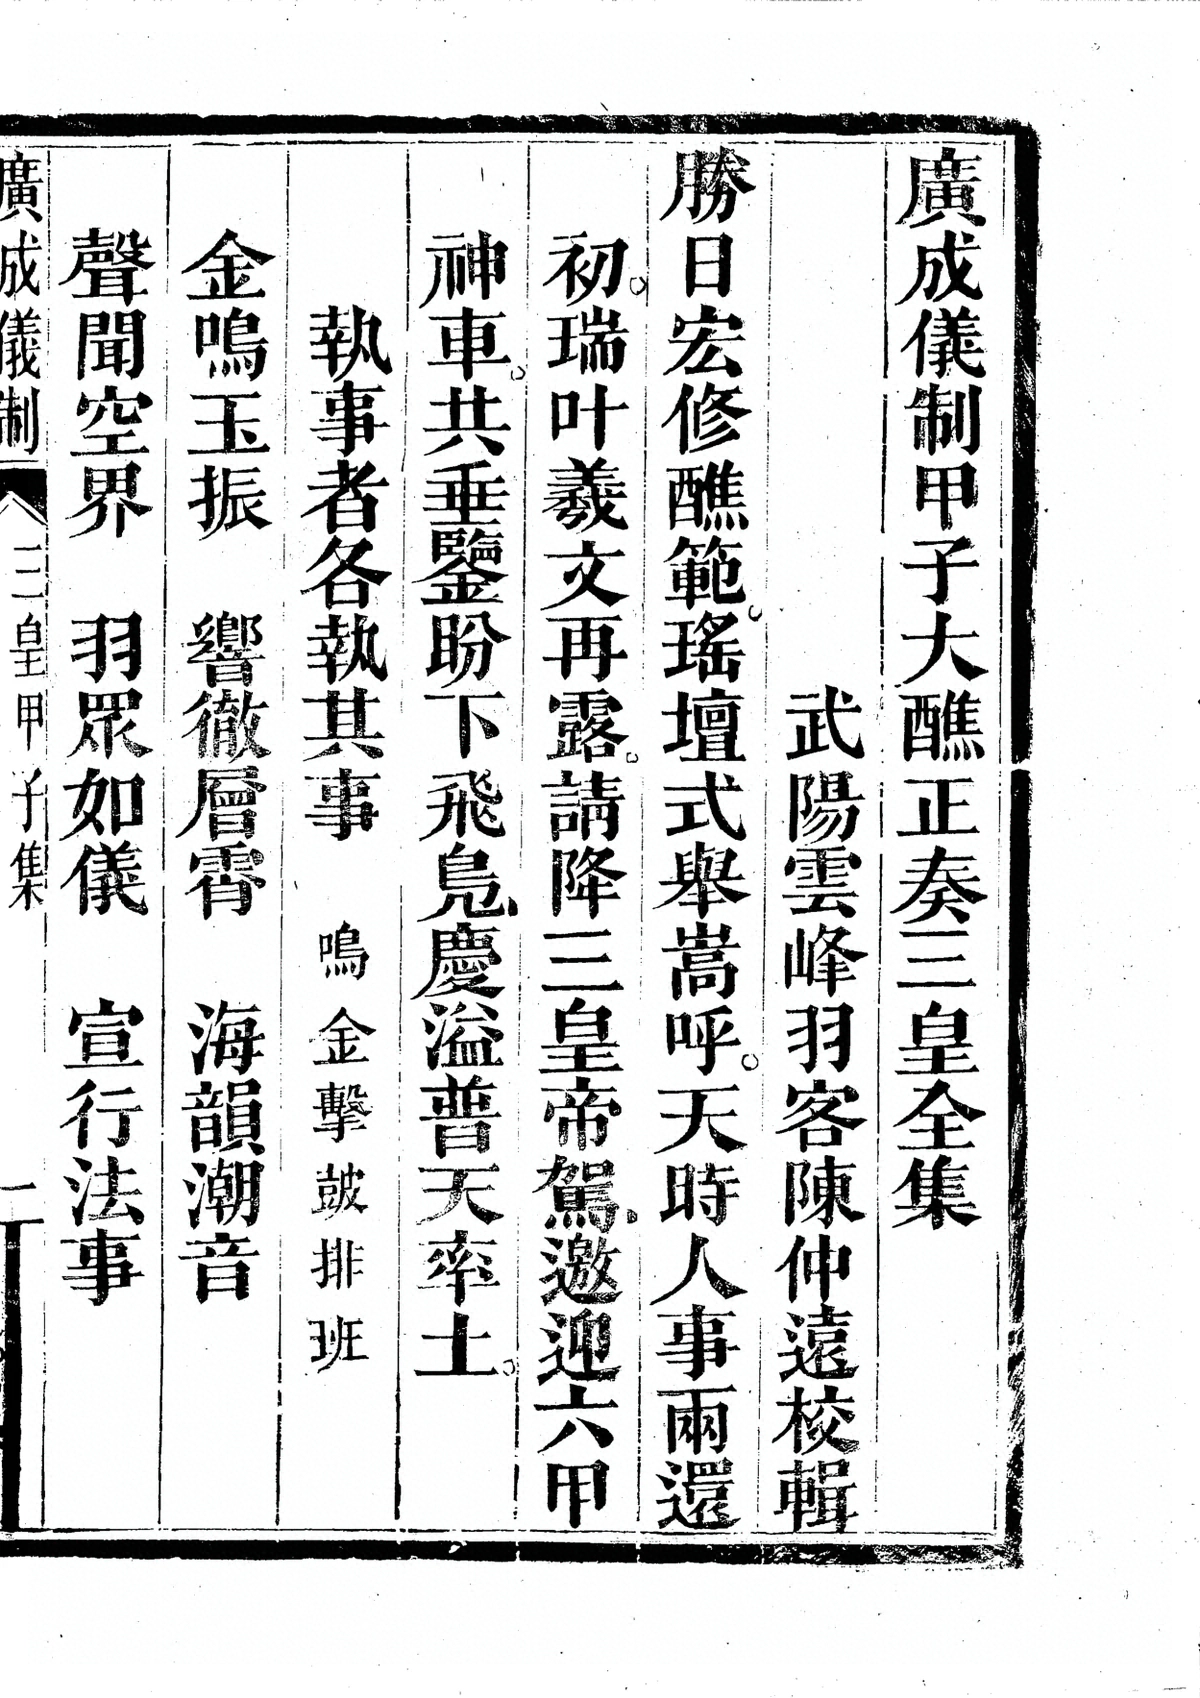 廣成儀制甲子大醮正奏三皇全集
武陽雲峰羽客陳仲遠校輯
勝日宏修醮範。瑤壇式舉嵩呼。天時人事兩還
初。瑞叶羲文再露。請降三皇帝駕。邀迎六甲
神車。共垂鑒盼下飛鳧。慶溢普天率土。
執事者各執其事 鳴金擊鼓排班
金鳴玉振 響徹層霄 海韻潮音
聲聞空界 羽眾如儀 宣行法事
廣成儀制 三皇甲子集 一